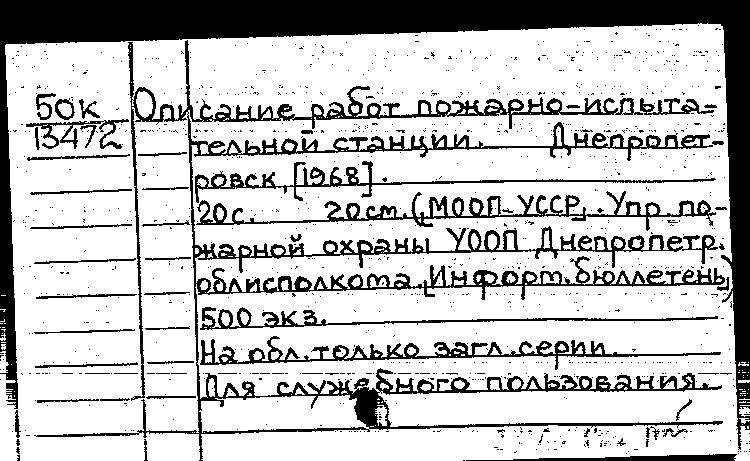 50К
13472
Описание работ пожарно-испыта-
тельной станции. Днепропет-
ровск, [1968].
20с. 20см. ([МООП УССР]. Упр. по-
жарной охраны УООП Днепропетр.
облисполкома. [Информ. бюллетень])
500 экз.
На обл. только загл. серии.
Для служебного пользования.